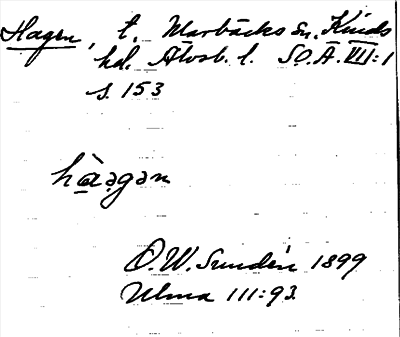 Hagen, t. Marbäcks sn. Kinds
hd. Älvsb. l. SOÄ. VII:1
s. 153
hàagan
O.W. Sundén 1899
Ulma 111:93.